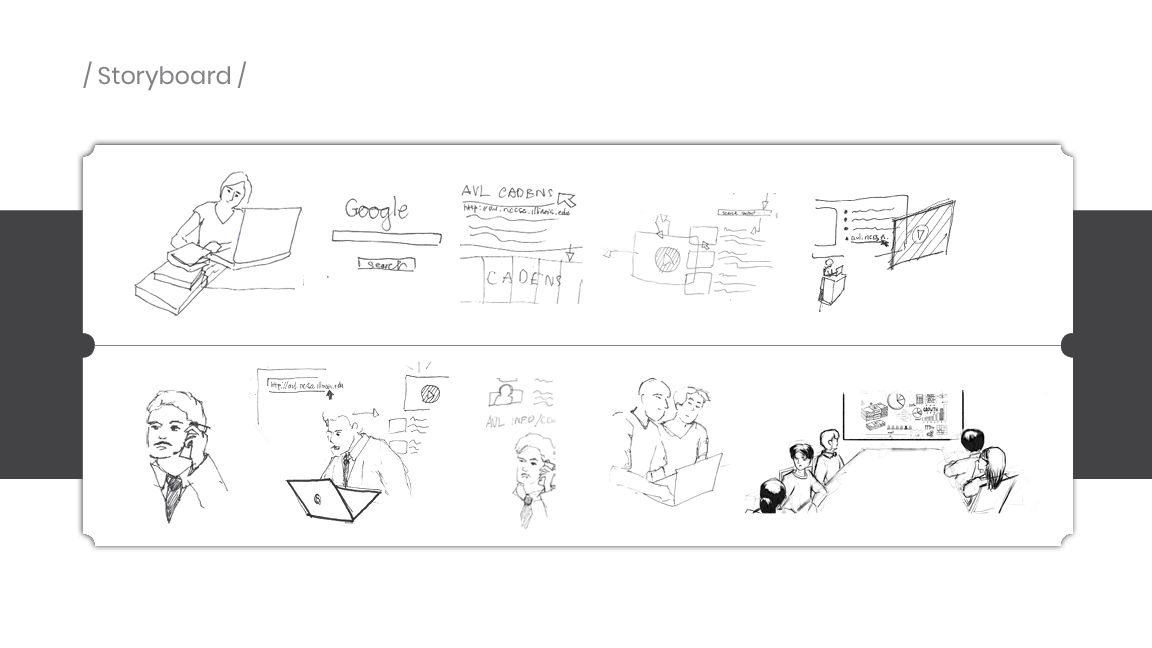 / Storyboard /
Google
search
AVL CADENS
http://avl.ncsa.illinois.edu
CADENS
search
avl.ncsa
http://avl.ncsa.illinois.edu
AVL INFO/